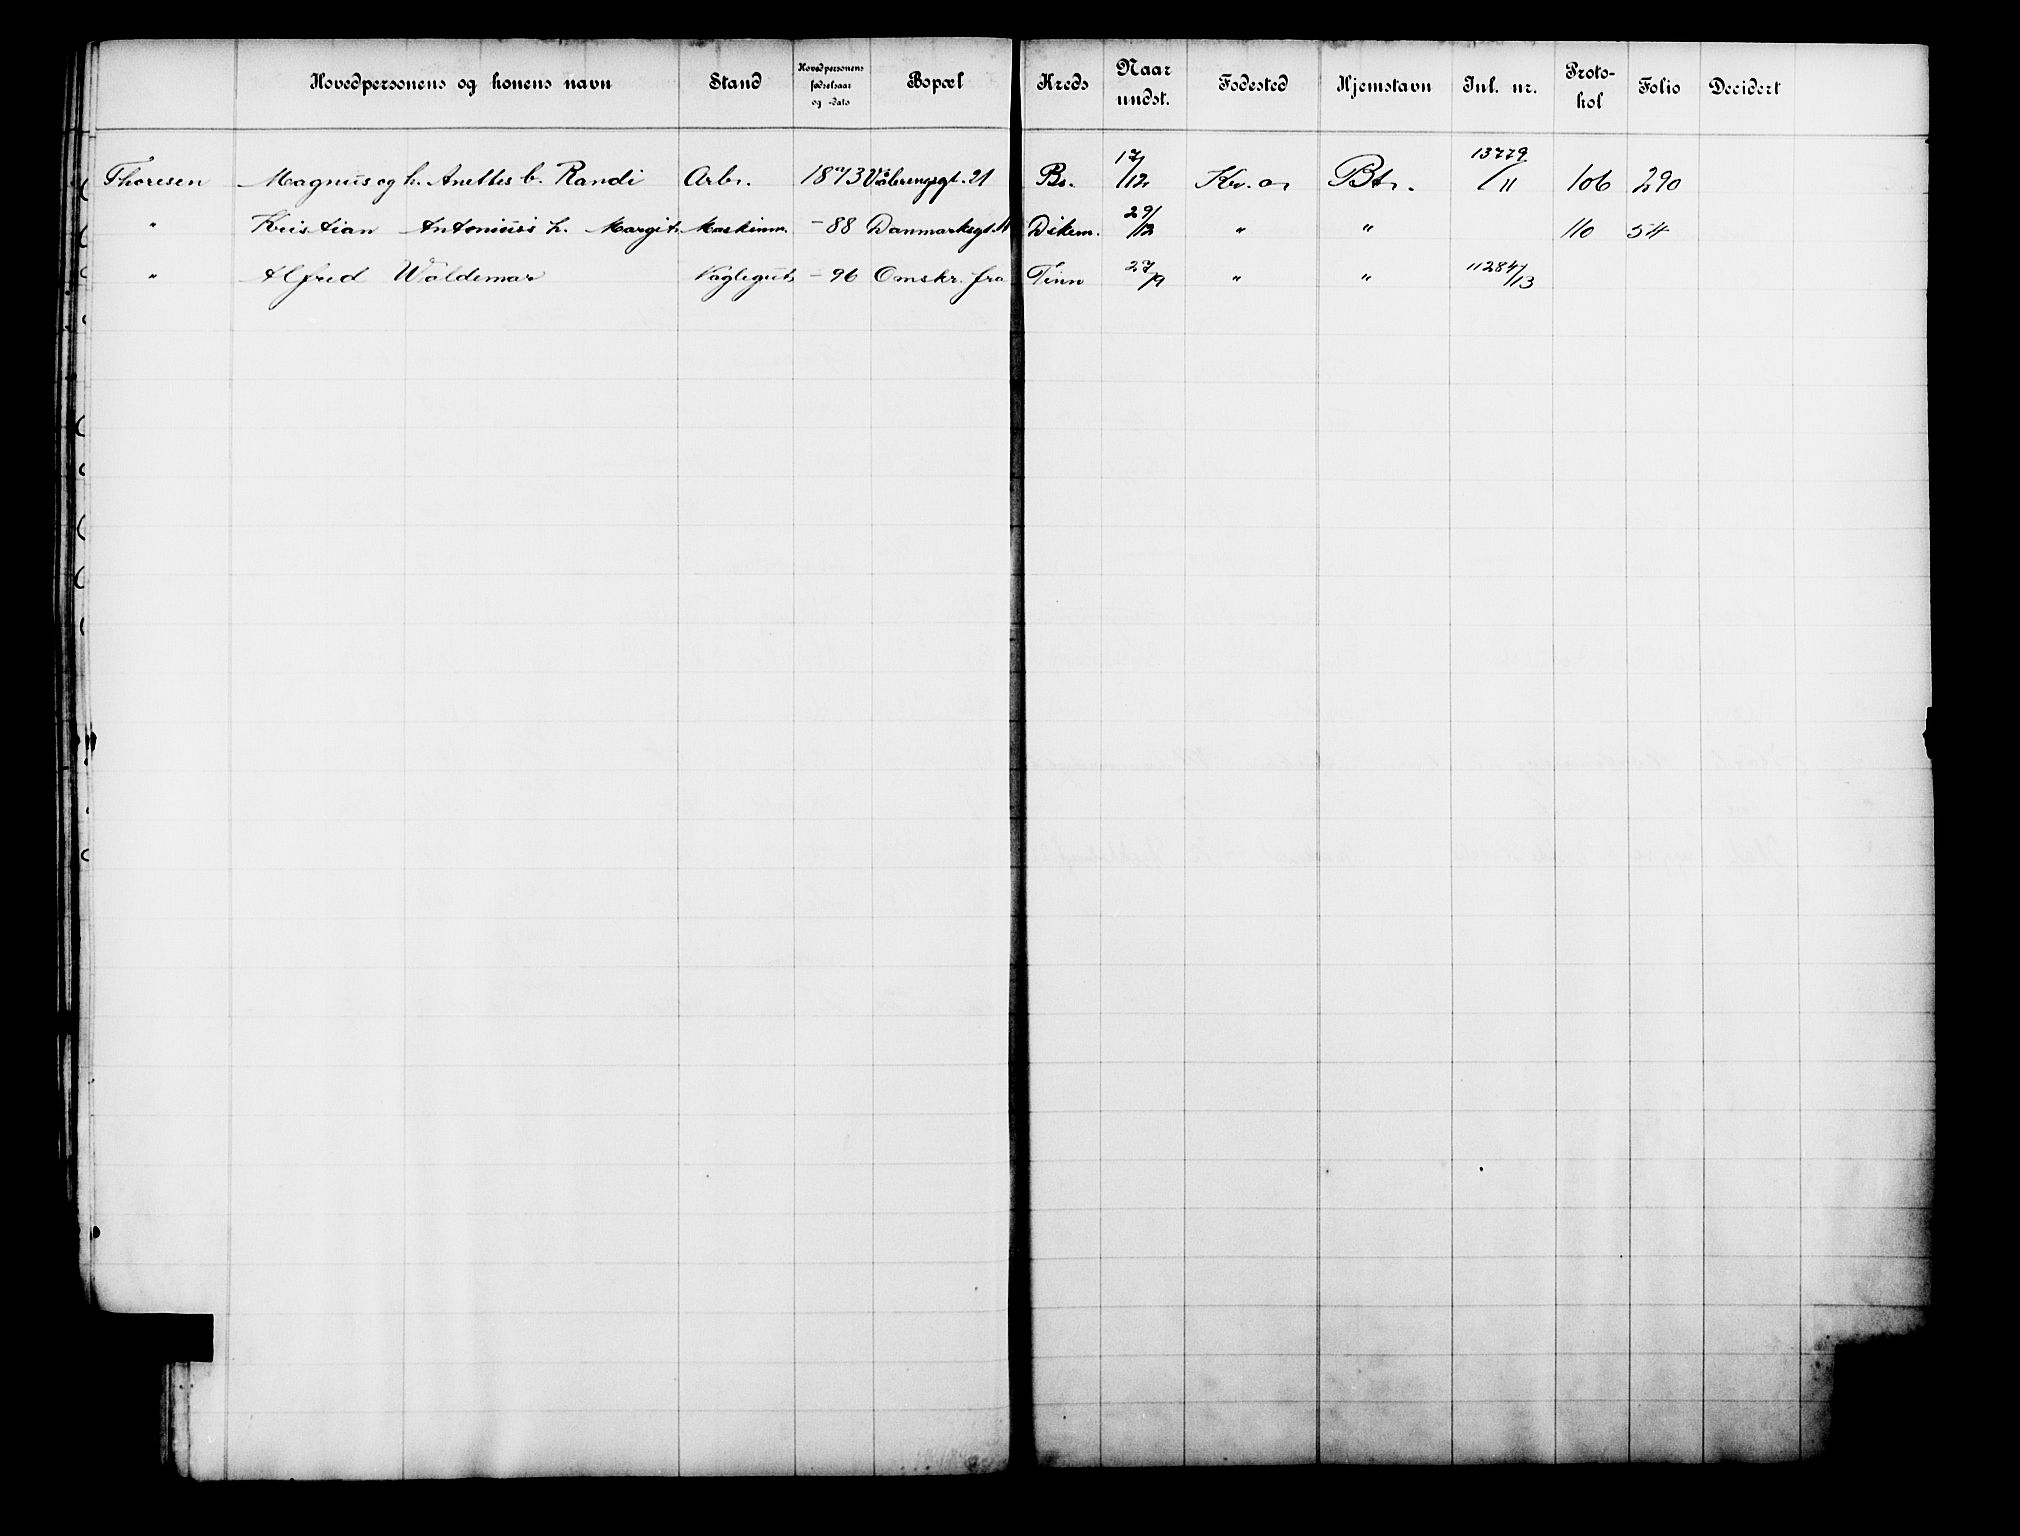 Hovedpersonens og konens navn Stand Hovedpersonens fødselsaar og -dato Bopæl Kreds Naar undst. Fødested Hjemstavn Inl. nr. Proto-kol Folio Decidert
Thoresen Magnus og h. Anettes b. Randi Arbr. 1873 Vålerenggt. 21 Bs. 17/12 Kr.a Btr. 13779/11 106 290
" Kristian Antonius h. Margit Maskinm. -88 Danmarksgt. Dikem. 29/12 " " 110 54
" Alfred Waldemar -96 Omskr. fra Tinn 27/9 " " 11284/13